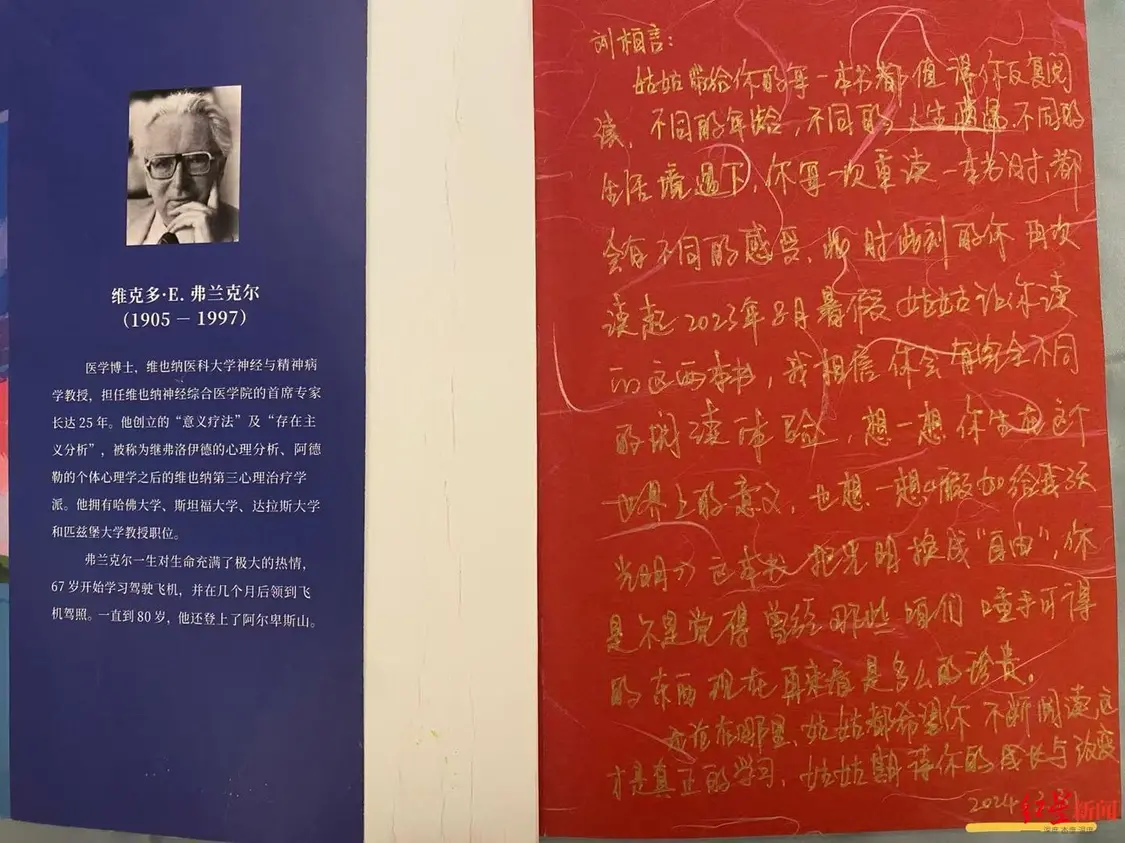 维克多·E. 弗兰克尔
（1905 — 1997）
医学博士，维也纳医科大学神经与精神病
学教授，担任维也纳神经综合医学院的首席专家
长达 25 年。他创立的“意义疗法”及“存在主
义分析”，被称为继弗洛伊德的心理分析、阿德
勒的个体心理学之后的维也纳第三心理治疗学
派。他拥有哈佛大学、斯坦福大学、达拉斯大学
和匹兹堡大学教授职位。
弗兰克尔一生对生命充满了极大的热情，
67 岁开始学习驾驶飞机，并在几个月后领到飞
机驾照。一直到 80 岁，他还登上了阿尔卑斯山。
刘相言：
姑姑带给你的每一本书都值得你反复阅
读，不同的年龄，不同的人生 不同的
生活境遇下，你每一次重读一本书时，都
会有不同的感呈、此时此刻的你 再次
读起2023年8月暑假 姑姑让你读
的这两本书，我相信你会有完全不同
的阅读体验，想一想你生在这个
世界上的意义，也想一想《假如给我三天
光明》这本书 把光明换成“自由”，你
是不是觉得曾经那些咱们唾手可得
的东西现在再来看是多么的珍贵。
在哪里、姑姑都希望你不断阅读这
才是真正的学习，姑姑期待你的成长与
2024
红星新闻
深度 态度 温度